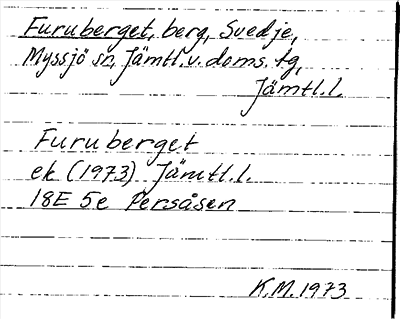 Furuberget, berg, Svedje,
Myssjö sn, Jämtl. v. doms. tg,
Jämtl. l.
Furuberget
ek (1973) Jämtl. l.
18E 5e Persåsen
K.M. 1973